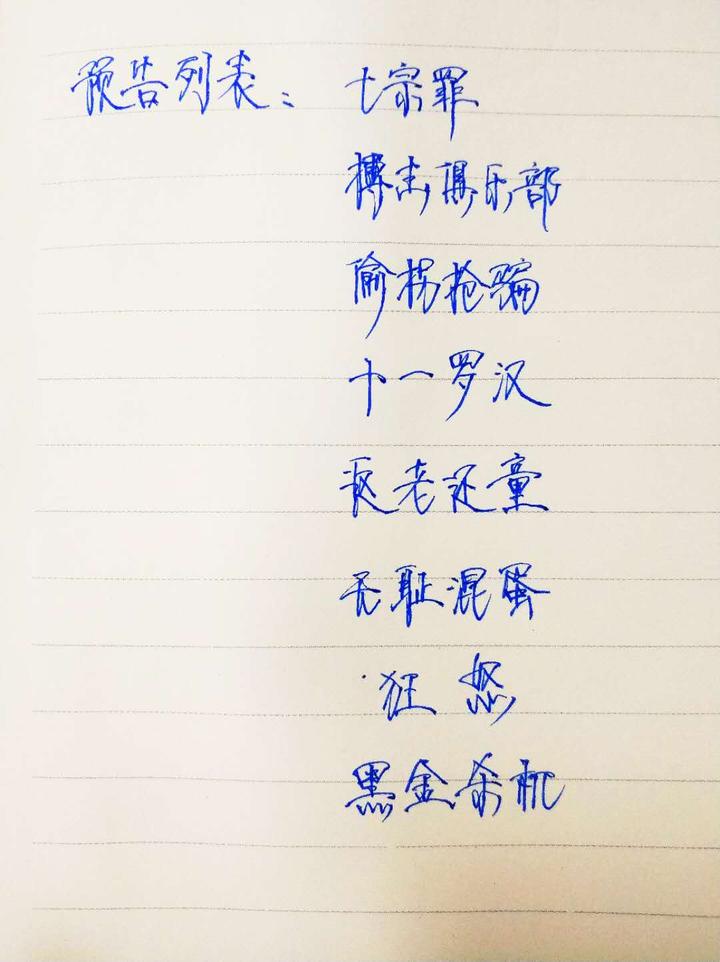 预告列表：七宗罪
搏击俱乐部
偷拐抢骗
十一罗汉
返老还童
无耻混蛋
狂怒
黑金杀机